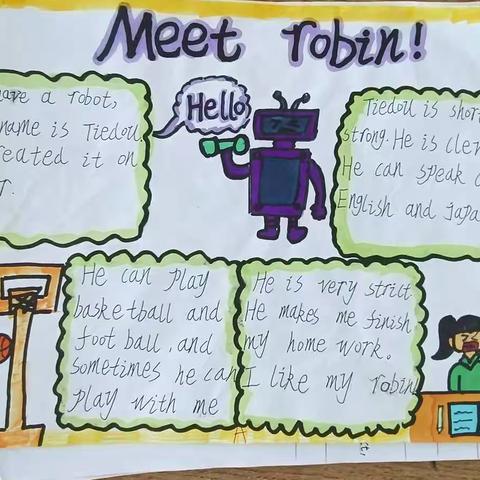 Meet robin!
Hello
have a robot,
name is Tiedou.
reated it on
T.
Tiedou is shor
strong. He is clev
He can speak C
English and Japa
He can play
basketball and
football, and
sometimes he can
play with me
He is very strict.
He makes me finish
my home work.
I like my robin